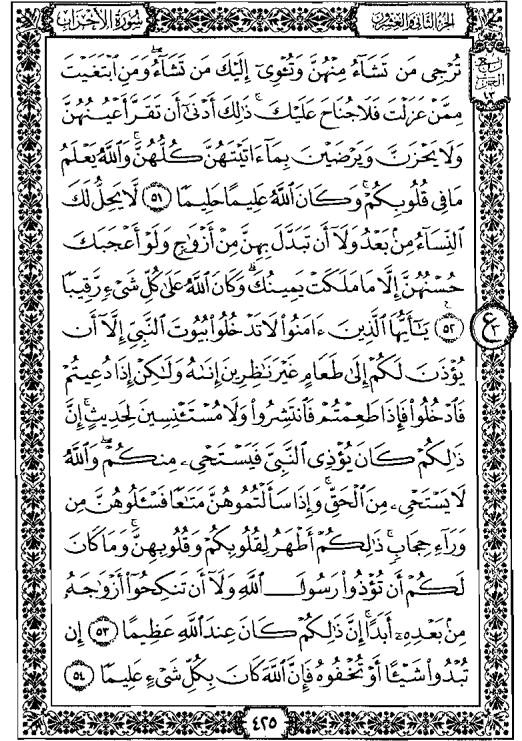 الجزء الثاني والعشرون
سورة الأحزاب
ربع
الحزب
٤٣
تُرْجِى مَن تَشَآءُ مِنْهُنَّ وَتُـْٔوِىٓ إِلَيْكَ مَن تَشَآءُ ۖ وَمَنِ ٱبْتَغَيْتَ
مِمَّنْ عَزَلْتَ فَلَا جُنَاحَ عَلَيْكَ ۚ ذَٰلِكَ أَدْنَىٰٓ أَن تَقَرَّ أَعْيُنُهُنَّ
وَلَا يَحْزَنَّ وَيَرْضَيْنَ بِمَآ ءَاتَيْتَهُنَّ كُلُّهُنَّ ۚ وَٱللَّهُ يَعْلَمُ
مَا فِى قُلُوبِكُمْ ۚ وَكَانَ ٱللَّهُ عَلِيمًا حَلِيمًا ٥١ لَّا يَحِلُّ لَكَ
ٱلنِّسَآءُ مِنۢ بَعْدُ وَلَآ أَن تَبَدَّلَ بِهِنَّ مِنْ أَزْوَٰجٍ وَلَوْ أَعْجَبَكَ
حُسْنُهُنَّ إِلَّا مَا مَلَكَتْ يَمِينُكَ ۗ وَكَانَ ٱللَّهُ عَلَىٰ كُلِّ شَىْءٍ رَّقِيبًا
٥٢ يَـٰٓأَيُّهَا ٱلَّذِينَ ءَامَنُوا۟ لَا تَدْخُلُوا۟ بُيُوتَ ٱلنَّبِىِّ إِلَّآ أَن
ع
يُؤْذَنَ لَكُمْ إِلَىٰ طَعَامٍ غَيْرَ نَـٰظِرِينَ إِنَىٰهُ وَلَـٰكِنْ إِذَا دُعِيتُمْ
فَٱدْخُلُوا۟ فَإِذَا طَعِمْتُمْ فَٱنتَشِرُوا۟ وَلَا مُسْتَـْٔنِسِينَ لِحَدِيثٍ ۚ إِنَّ
ذَٰلِكُمْ كَانَ يُؤْذِى ٱلنَّبِىَّ فَيَسْتَحْىِۦ مِنكُمْ ۖ وَٱللَّهُ
لَا يَسْتَحْىِۦ مِنَ ٱلْحَقِّ ۚ وَإِذَا سَأَلْتُمُوهُنَّ مَتَـٰعًا فَسْـَٔلُوهُنَّ مِن
وَرَآءِ حِجَابٍ ۚ ذَٰلِكُمْ أَطْهَرُ لِقُلُوبِكُمْ وَقُلُوبِهِنَّ ۚ وَمَا كَانَ
لَكُمْ أَن تُؤْذُوا۟ رَسُولَ ٱللَّهِ وَلَآ أَن تَنكِحُوٓا۟ أَزْوَٰجَهُۥ
مِنۢ بَعْدِهِۦٓ أَبَدًا ۚ إِنَّ ذَٰلِكُمْ كَانَ عِندَ ٱللَّهِ عَظِيمًا ٥٣ إِن
تُبْدُوا۟ شَيْـًٔا أَوْ تُخْفُوهُ فَإِنَّ ٱللَّهَ كَانَ بِكُلِّ شَىْءٍ عَلِيمًا ٥٤
٤٢٥